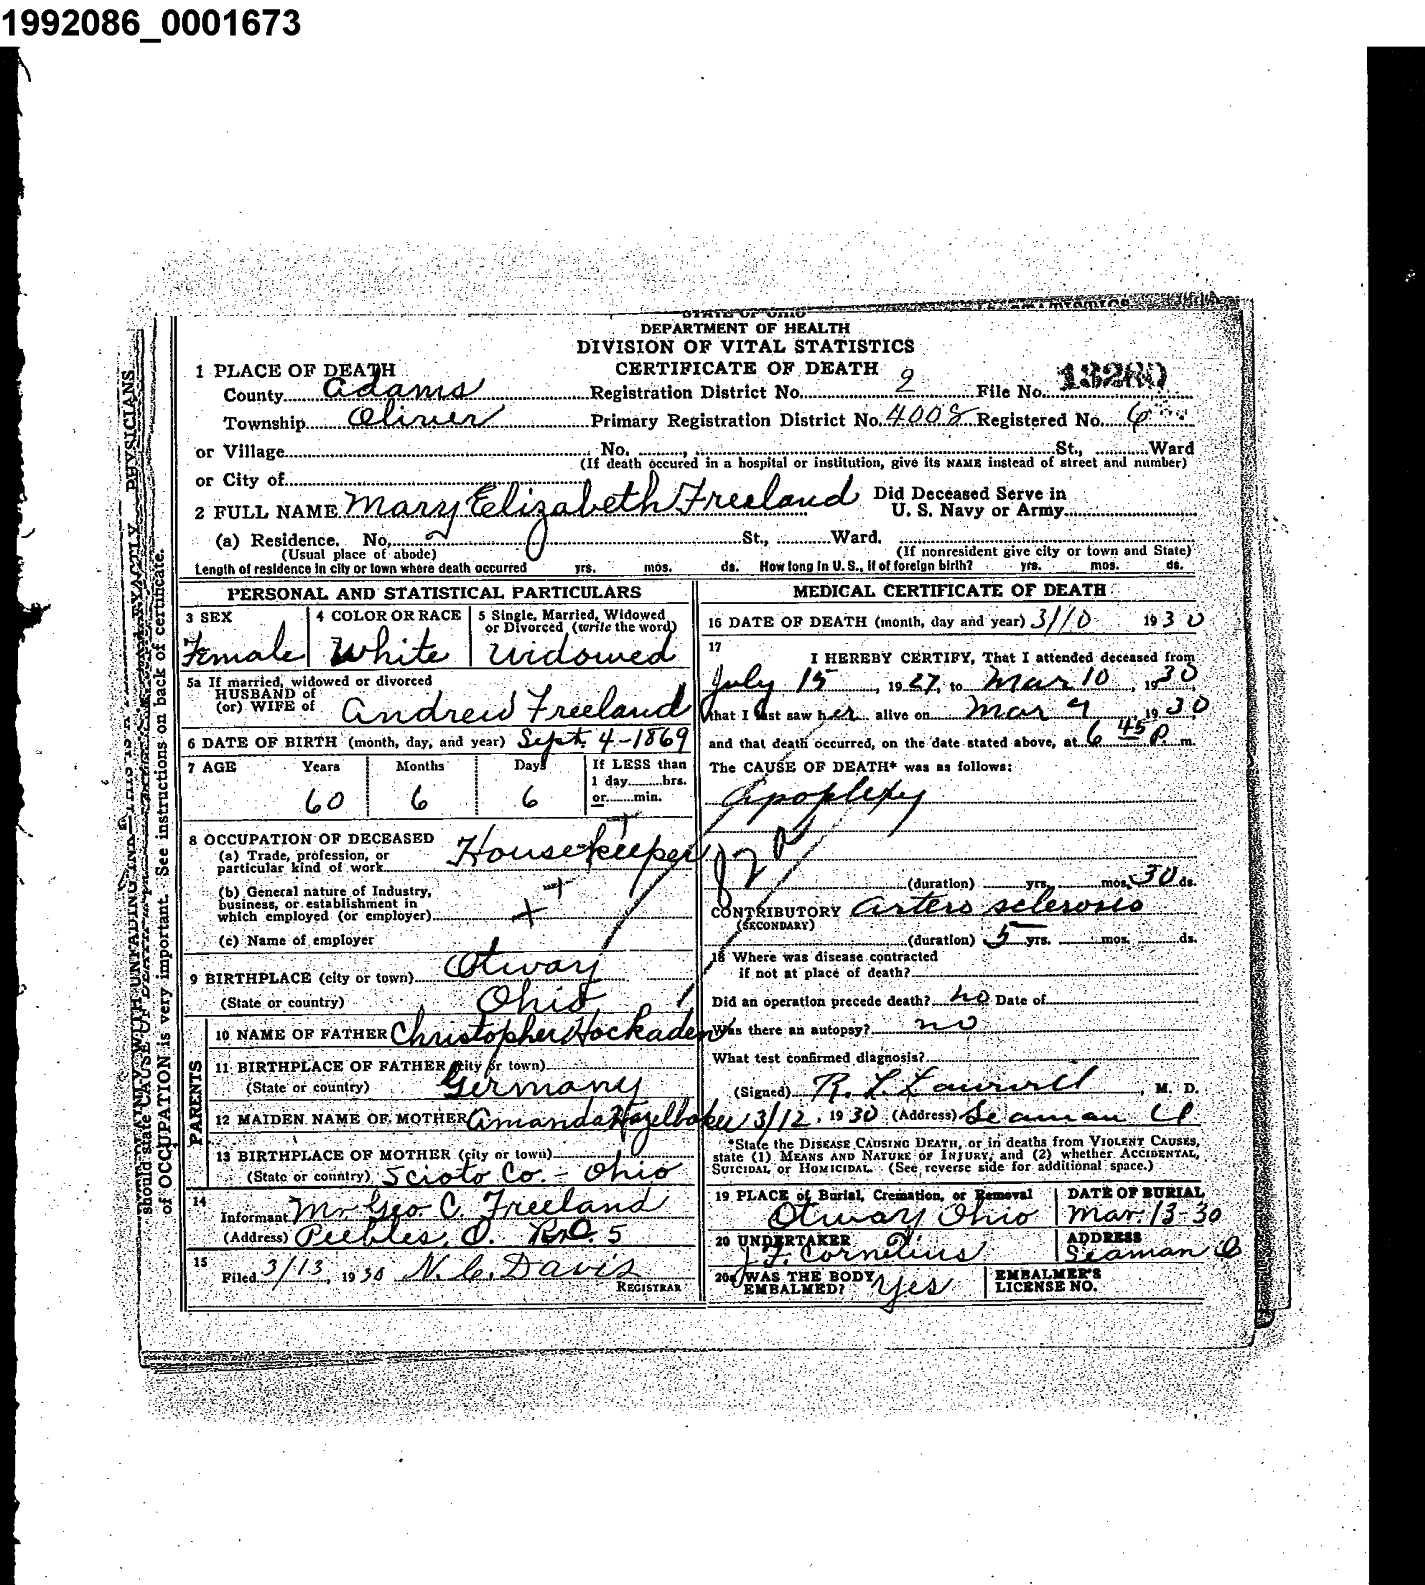 1992086_0001673
STATE OF OHIO
DEPARTMENT OF HEALTH
DIVISION OF VITAL STATISTICS
CERTIFICATE OF DEATH
1 PLACE OF DEATH
County Adams Registration District No. 2 File No.
Township Oliver Primary Registration District No. 4008 Registered No. 6
or Village No. , St., Ward
(If death occured in a hospital or institution, give its NAME instead of street and number)
or City of
2 FULL NAME Mary Elizabeth Freeland Did Deceased Serve in U. S. Navy or Army
(a) Residence. No. St., Ward.
(Usual place of abode) (If nonresident give city or town and State)
Length of residence in city or town where death occurred yrs. mos. ds. How long in U. S., if of foreign birth? yrs. mos. ds.
PERSONAL AND STATISTICAL PARTICULARS
3 SEX
Female
4 COLOR OR RACE
White
5 Single, Married, Widowed
or Divorced (write the word)
Widowed
5a If married, widowed or divorced
HUSBAND of
(or) WIFE of Andrew Freeland
6 DATE OF BIRTH (month, day, and year) Sept. 4-1869
7 AGE Years Months Days If LESS than
1 day hrs.
60 6 6 or min.
8 OCCUPATION OF DECEASED
(a) Trade, profession, or
particular kind of work Housekeeper
(b) General nature of Industry,
business, or establishment in
which employed (or employer)
(c) Name of employer
9 BIRTHPLACE (city or town) Otway
(State or country) Ohio
PARENTS
10 NAME OF FATHER Christopher Hockaden
11 BIRTHPLACE OF FATHER (city or town)
(State or country) Germany
12 MAIDEN NAME OF MOTHER Amanda Hazelbaker
13 BIRTHPLACE OF MOTHER (city or town)
(State or country) Scioto Co. - Ohio
14
Informant Mr Geo C. Freeland
(Address) Peebles, O. 5
15
Filed 3/13, 1930 N. C. Davis
REGISTRAR
MEDICAL CERTIFICATE OF DEATH
16 DATE OF DEATH (month, day and year) 3/10 1930
17
I HEREBY CERTIFY, That I attended deceased from
July 15, 1927, to Mar 10, 1930
that I last saw her alive on Mar 9 1930
and that death occurred, on the date stated above, at 6 45 P m.
The CAUSE OF DEATH* was as follows:
Apoplexy
(duration) yrs. mos. 30 ds.
CONTRIBUTORY Artero sclerosis
(SECONDARY)
(duration) 5 yrs. mos. ds.
18 Where was disease contracted
if not at place of death?
Did an operation precede death? no Date of
Was there an autopsy? no
What test confirmed diagnosis?
(Signed) R. L. , M. D.
3/12, 1930 (Address) Seaman O
*State the DISEASE CAUSING DEATH, or in deaths from VIOLENT CAUSES,
state (1) MEANS AND NATURE OF INJURY, and (2) whether ACCIDENTAL,
SUICIDAL or HOMICIDAL. (See reverse side for additional space.)
19 PLACE of Burial, Cremation, or Removal
Otway Ohio
DATE OF BURIAL
Mar. 13-30
20 UNDERTAKER
J. F. Cornelius
ADDRESS
Seaman O
20a WAS THE BODY
EMBALMED? Yes
EMBALMER'S
LICENSE NO.
PHYSICIANS
should state CAUSE OF DEATH
of OCCUPATION is very important. See instructions on back of certificate.